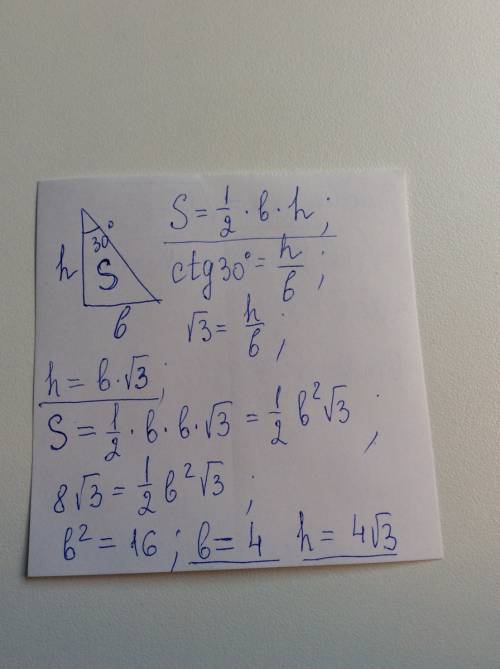 S = 1/2 · b · h;
30°
h
S
ctg 30° = h/b;
b
√3 = h/b;
h = b · √3;
S = 1/2 · b · b · √3 = 1/2 b²√3;
8√3 = 1/2 b²√3;
b² = 16; b = 4 h = 4√3